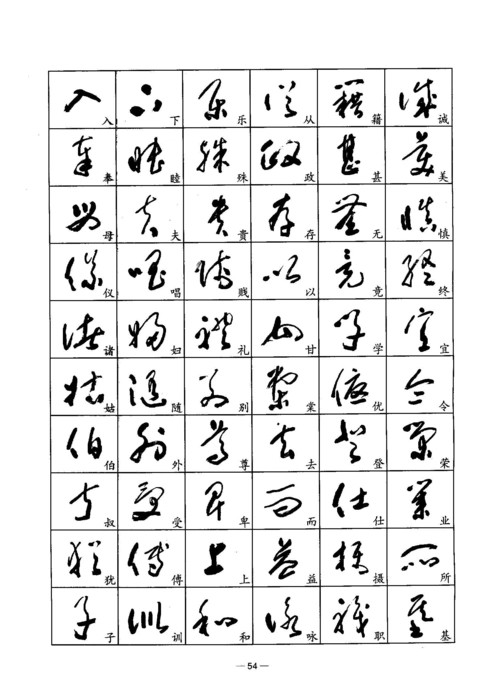 诚美慎终宜令荣业所基
籍甚无竟学优登仕摄职
从政存以甘棠去而益咏
乐殊貴贱礼别尊卑上和
下睦夫唱妇随外受傅训
入奉母仪诸姑伯叔犹子
— 54 —